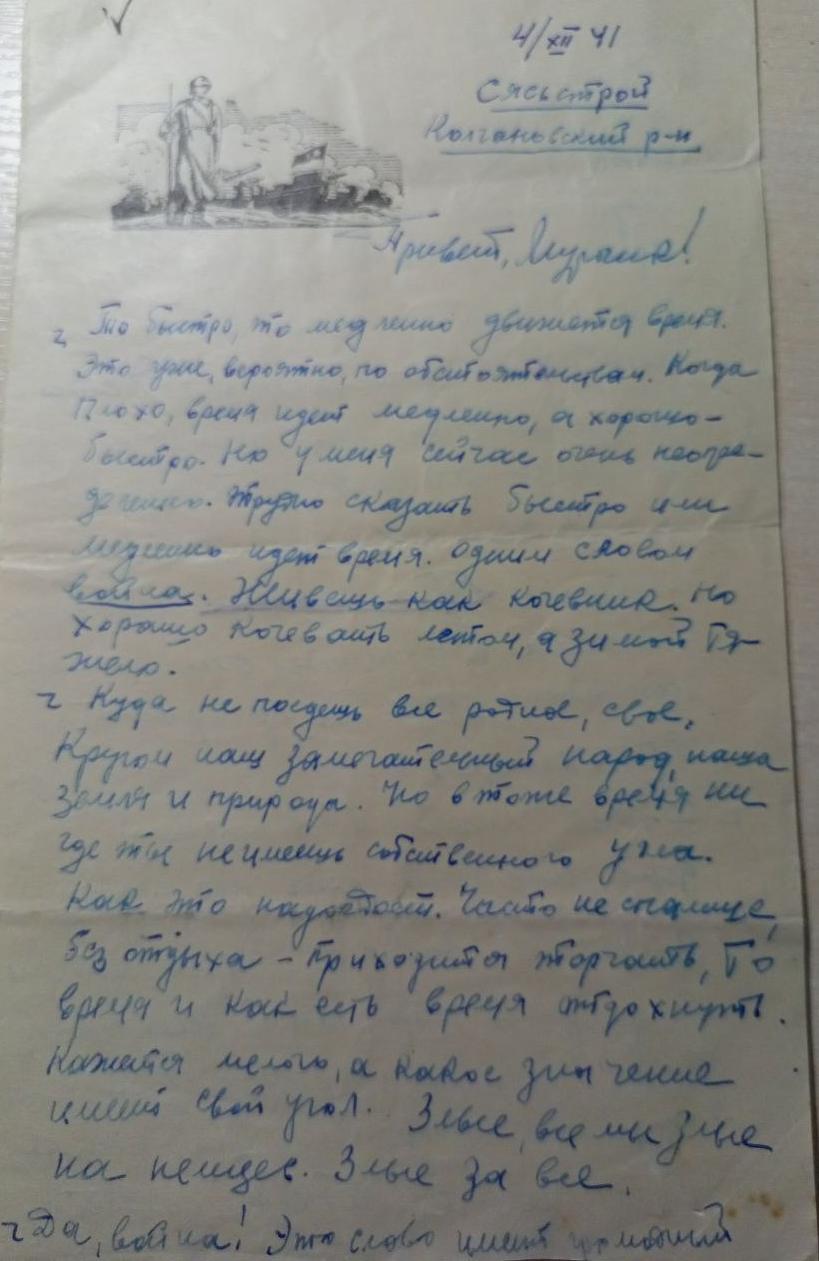 4/XII 41
Сясьстрой
Колчановский р-н
Привет, Мурана!
То быстро, то медленно движется время.
Это уже, вероятно, по обстоятельствам. Когда
плохо, время идет медленно, а хорошо –
быстро. Но у меня сейчас очень неопре-
деленно. Трудно сказать быстро или
медленно идет время. Одним словом
война. Живешь как кочевник. Но
хорошо кочевать летом, а зимой тя-
жело.
Куда не поедешь все родное, свое.
Кругом наш замечательный народ, наша
земля и природа. Но в тоже время ни
где ты не имеешь собственного угла.
Как это надоедает. Часто не спавше,
без отдыха – приходится торчать, то
время и как есть время отдохнуть.
Кажется мелочь, а какое значение
имеет свой угол. Злые, все мы злые
на немцев. Злые за все.
Да, война! Это слово имеет громадный